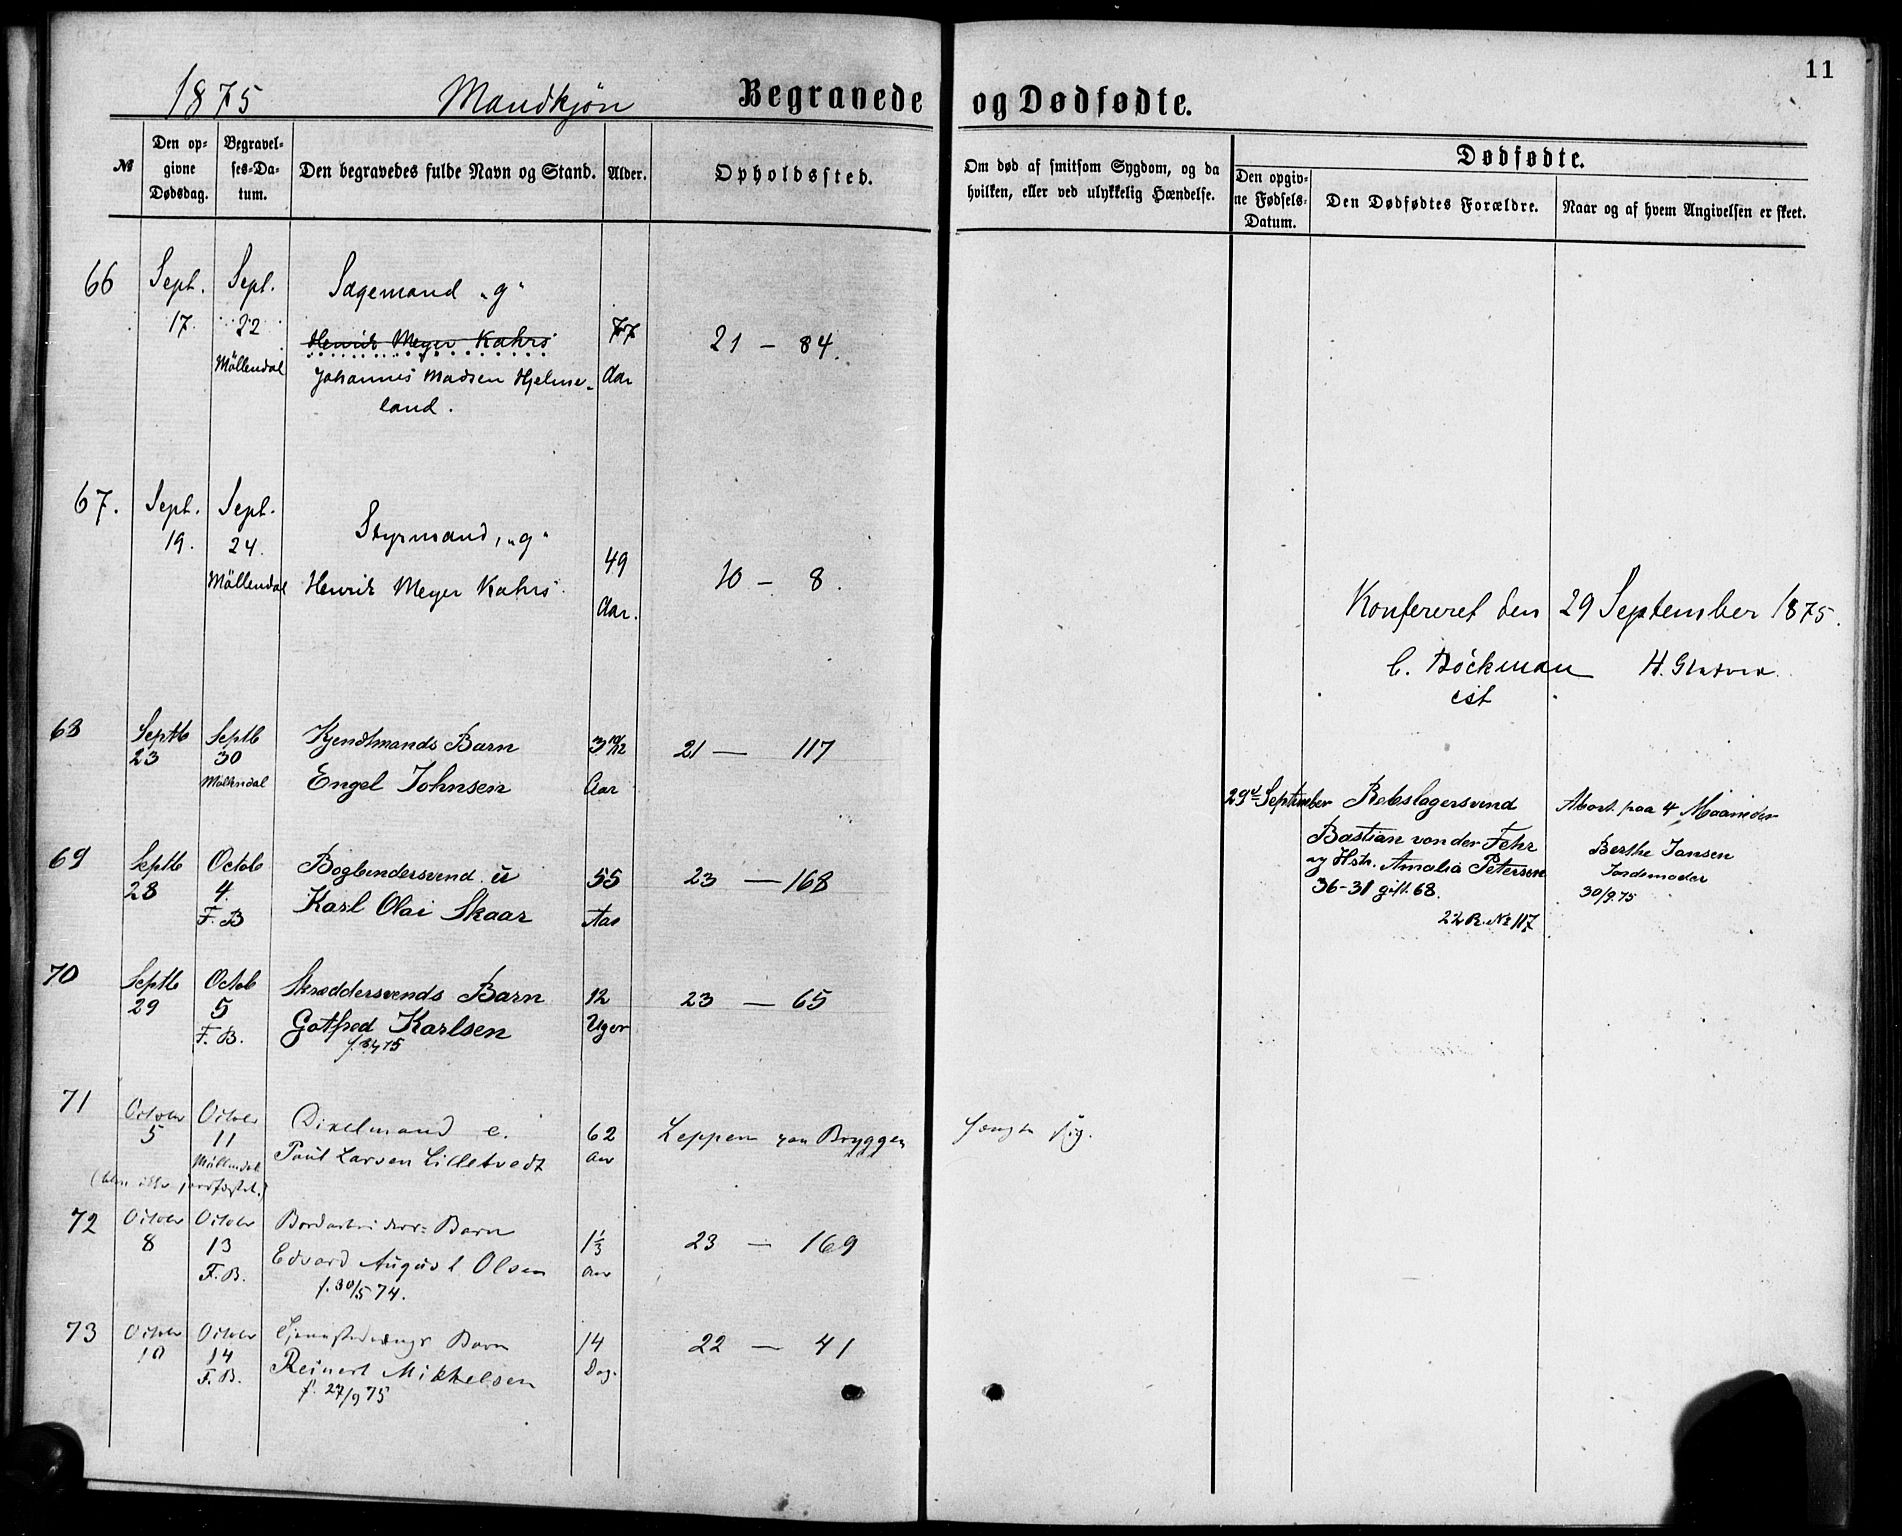 11
1875 Mandkjøn Begravede og Dødfødte.
№
Den op-
givne
Dødsdag.
Begravel-
ses-Da-
tum.
Den begravedes fulde Navn og Stand.
Alder.
Opholdssted.
Om død af smitsom Sygdom, og da
hvilken, eller ved ulykkelig Hændelse.
Dødfødte.
Den opgiv-
ne Fødsels-
Datum.
Den Dødfødtes Forældre.
Naar og af hvem Angivelsen er skeet.
66 Sept. Sept. Sagemand "g"
17. 22 Henrik Meyer Kahrs 77 21 - 84.
Möllendal Johannes Madsen Hjelme- Aar
land.
67. Sept. Sept. Styrmand, "g"
19. 24. 49
Möllendal Henrik Meyer Kahrs 10 - 8.
Aar.
Konfereret den 29 September 1875.
C. Böckman
cst
68 Septb Septb Kjendtmands Barn 3 10/12 21 — 117
23 30
Möllendal Engel Johnsen Aar
29d September Rebslagersvend Abort paa 4 Maaneder
Bastian von der Fehr Berthe Jansen
og Hstr. Amalia Petersen Jordemoder
36-31 gift. 68. 30/9.75
22 R. № 117
69 Septb Octob Bogbindersvend u 55 23 — 168
28 4. Karl Olai Skaar Aar
F. B
70 Septb Octob Skræddersvends Barn 12 23 — 65
29 5 Gotfred Karlsen Uger
F. B.
71 October October Dixelmand e. 62 Leppen paa Bryggen hængte sig.
5 11 Paul Larsen Lilletvedt Aar
Möllendal
(blev ikke jordfæstet.)
72 October October Bordarbeiders Barn 1⅓ 23 — 169
8 13 Edvard August Olsen Aar
F. B. f. 30/5 74.
73 October October Barn 14 22 — 41
10 14 Reinert Mikkelsen Dag.
F. B. f. 27/9 75